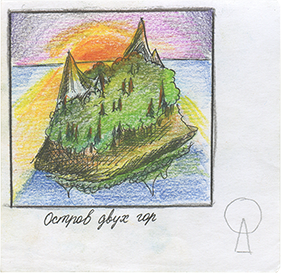 Остров двух гор